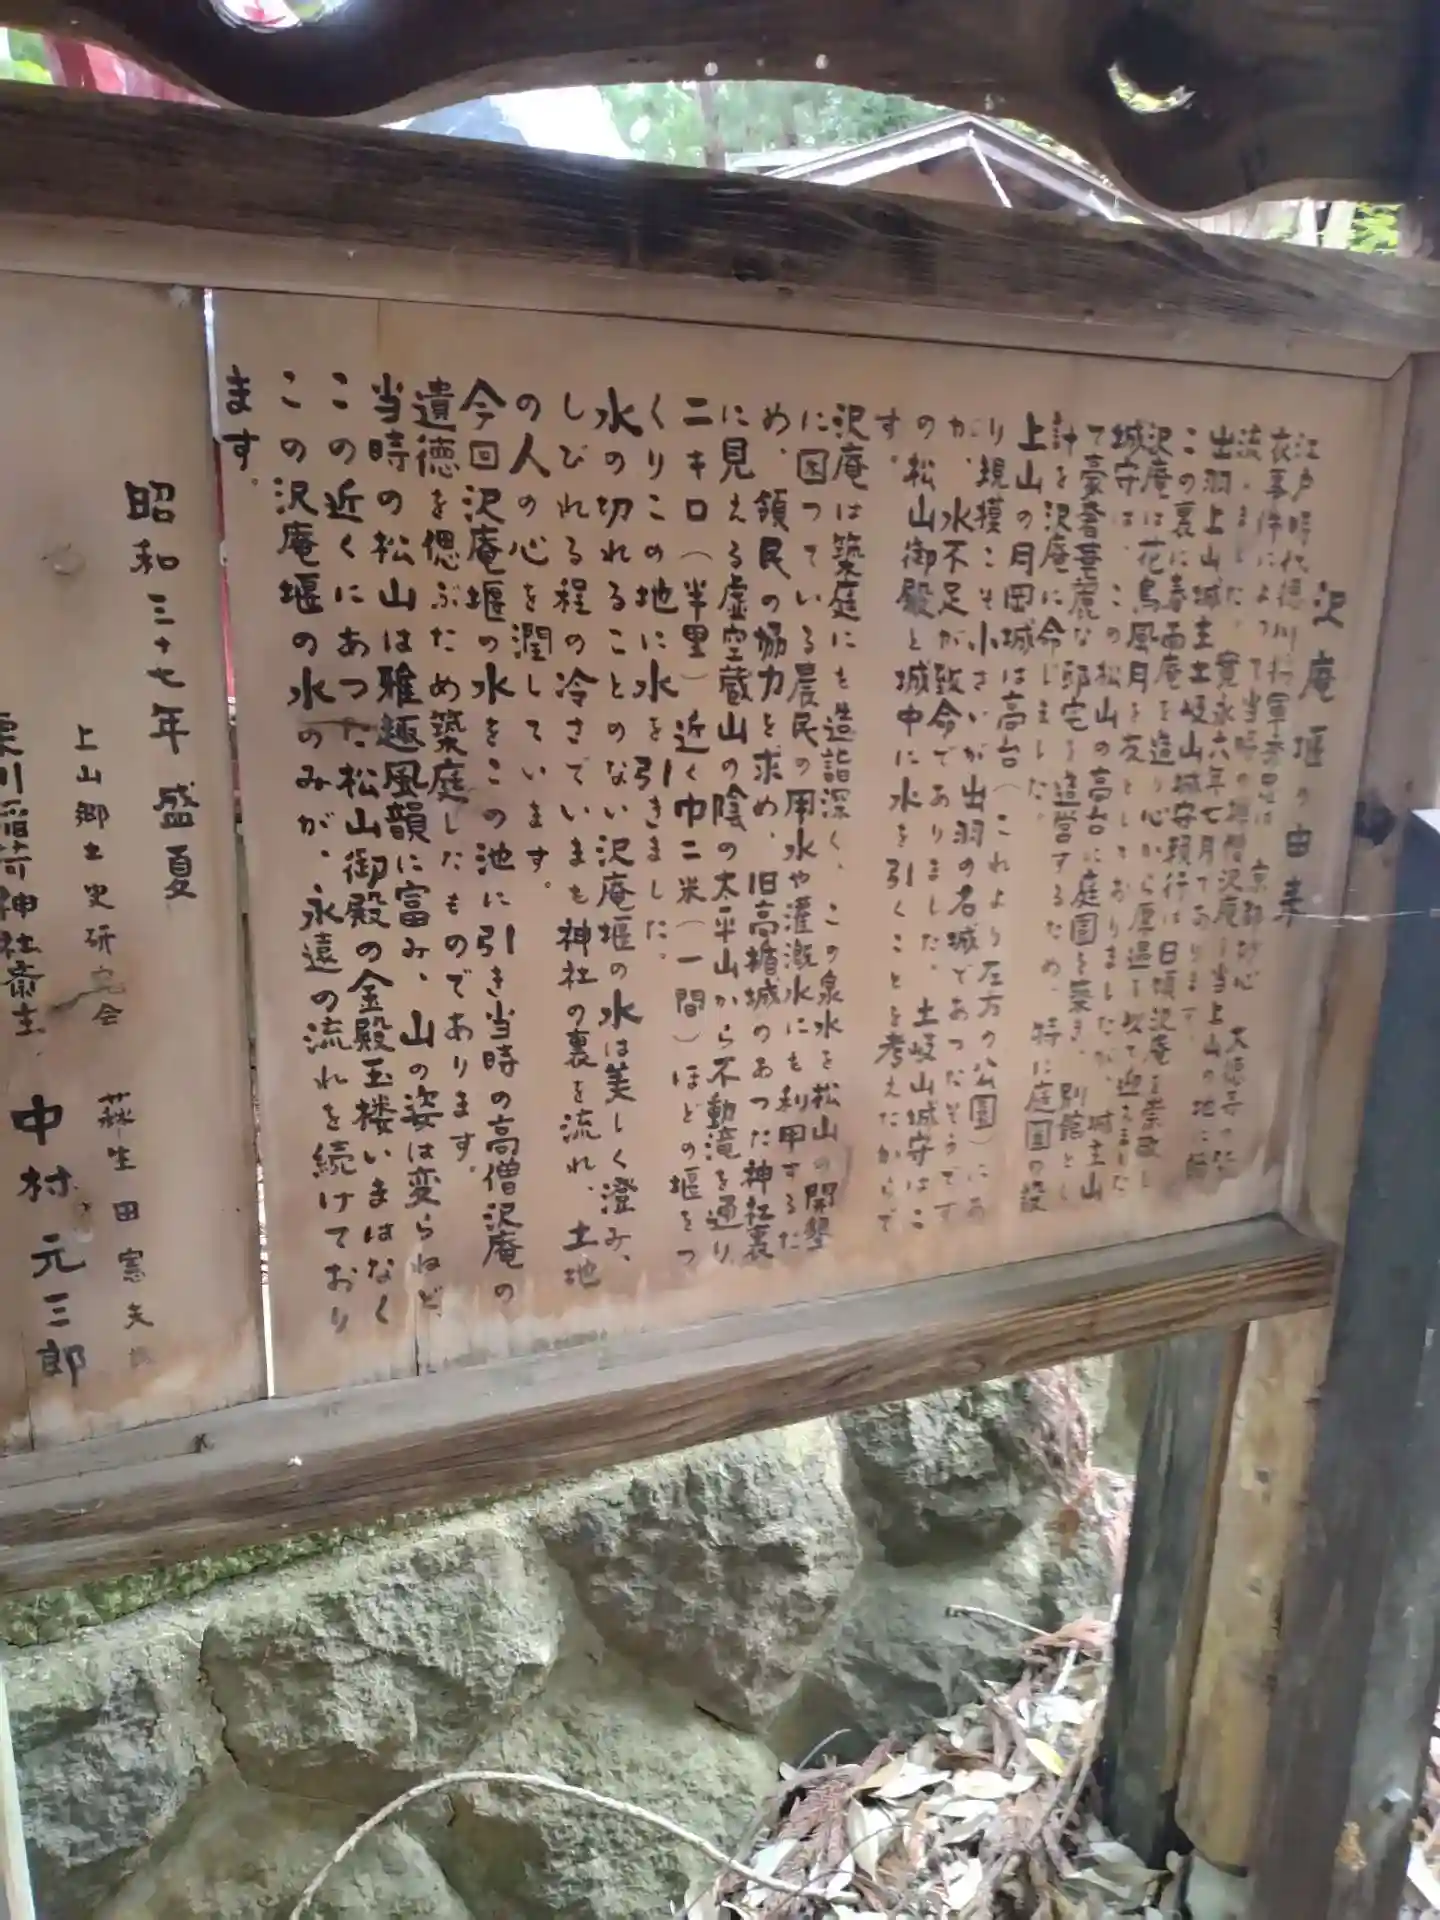 沢庵堰の由来
江戸時代徳川将軍 京都妙心 大徳寺の紫
衣事件によって当時の禅僧沢庵を当上山の地に
流しました。寛永六年七月であります。
出羽上山城主土岐山城守頼行は日頃沢庵を崇敬し
この裏に春雨庵を造り心から厚遇を以て迎えました
沢庵は花鳥風月を友としておりましたが、城主山
城守は、この松山の高台に庭園を築き、別館とし
て豪奢華麗な邸宅を造営するため、特に庭園の設
計を沢庵に命じました。
上山の月岡城は高台(これより左方の公園)にあ
り規模こそ小さいが出羽の名城であったそうです
が、水不足が致命でありました。土岐山城守はこ
の松山御殿と城中に水を引くことを考えたからで
す。
沢庵は築庭にも造詣深く、この泉水を松山の開墾
に困っている農民の用水や灌漑水にも利用するた
め、領民の協力を求め、旧高楯城のあった神社裏
に見える虚空蔵山の陰の太平山から不動滝を通り
二キロ(半里)近く巾二米(一間)ほどの堰をつ
くりこの地に水を引きました。
水の切れることのない沢庵堰の水は美しく澄み、
しびれる程の冷さでいまも神社の裏を流れ、土地
の人の心を潤しています。
今回沢庵堰の水をこの池に引き当時の高僧沢庵の
遺徳を偲ぶため築庭したものであります。
当時の松山は雅趣風韻に富み、山の姿は変らねど、
この近くにあった松山御殿の金殿玉楼いまはなく
この沢庵堰の水のみが、永遠の流れを続けており
ます。
昭和三十七年盛夏
上山郷土史研究会 萩生田憲夫
栗川稲荷神社斎主 中村元三郎